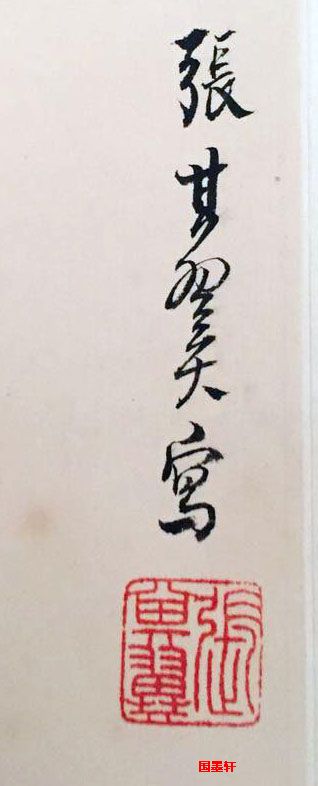 張其翼寫
張其翼
国墨轩